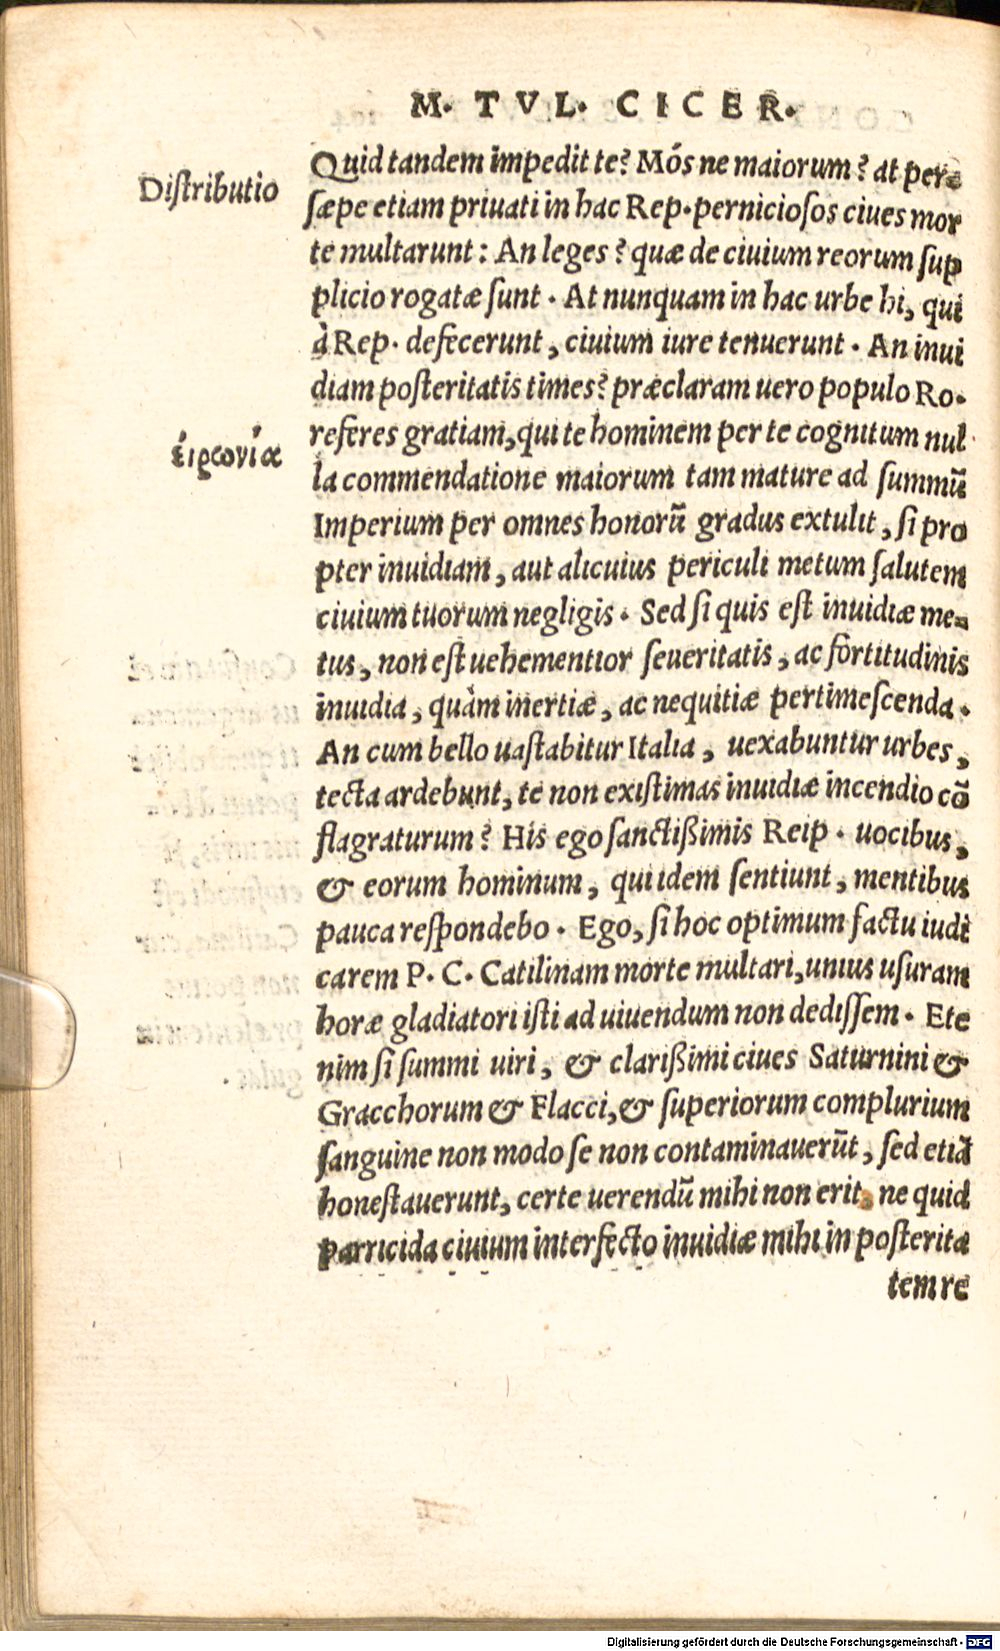 M. TVL. CICER.
Distributio
Quid tandem impedit te? Mós ne maiorum? at per-
sæpe etiam priuati in hac Rep. perniciosos ciues mor
te multarunt: An leges? quæ de ciuium reorum sup
plicio rogatæ sunt. At nunquam in hac urbe hi, qui
à Rep. defecerunt, ciuium iure tenuerunt. An inui
diam posteritatis times? præclaram uero populo Ro.
ἐιρωνία
referes gratiam, qui te hominem per te cognitum nul
la commendatione maiorum tam mature ad summū
Imperium per omnes honorū gradus extulit, si pro
pter inuidiam, aut alicuius periculi metum salutem
ciuium tuorum negligis. Sed si quis est inuidiæ me-
tus, non est uehementior seueritatis, ac fortitudinis
inuidia, quàm inertiæ, ac nequitiæ pertimescenda.
An cum bello uastabitur Italia, uexabuntur urbes,
tecta ardebunt, te non existimas inuidiæ incendio cō
flagraturum? His ego sanctißimis Reip. uocibus,
& eorum hominum, qui idem sentiunt, mentibus
pauca respondebo. Ego, si hoc optimum factu iudi
carem P. C. Catilinam morte multari, unius usuram
horæ gladiatori isti ad uiuendum non dedissem. Ete
nim si summi uiri, & clarißimi ciues Saturnini &
Gracchorum & Flacci, & superiorum complurium
sanguine non modo se non contaminauerūt, sed etiā
honestauerunt, certe uerendū mihi non erit, ne quid
parricida ciuium interfecto inuidiæ mihi in posterita
tem re
Digitalisierung gefördert durch die Deutsche Forschungsgemeinschaft - DFG